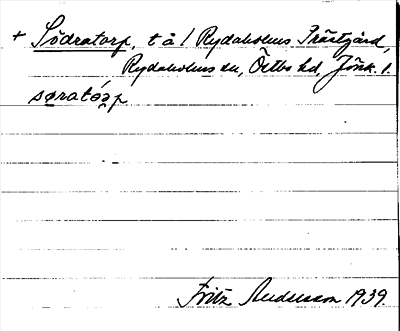 + Södratorp, t å 1 Rydaholms Prästgård,
Rydaholms sn, Östbo hd, Jönk. l.
søratóʒp
Fritz Andersson 1939.